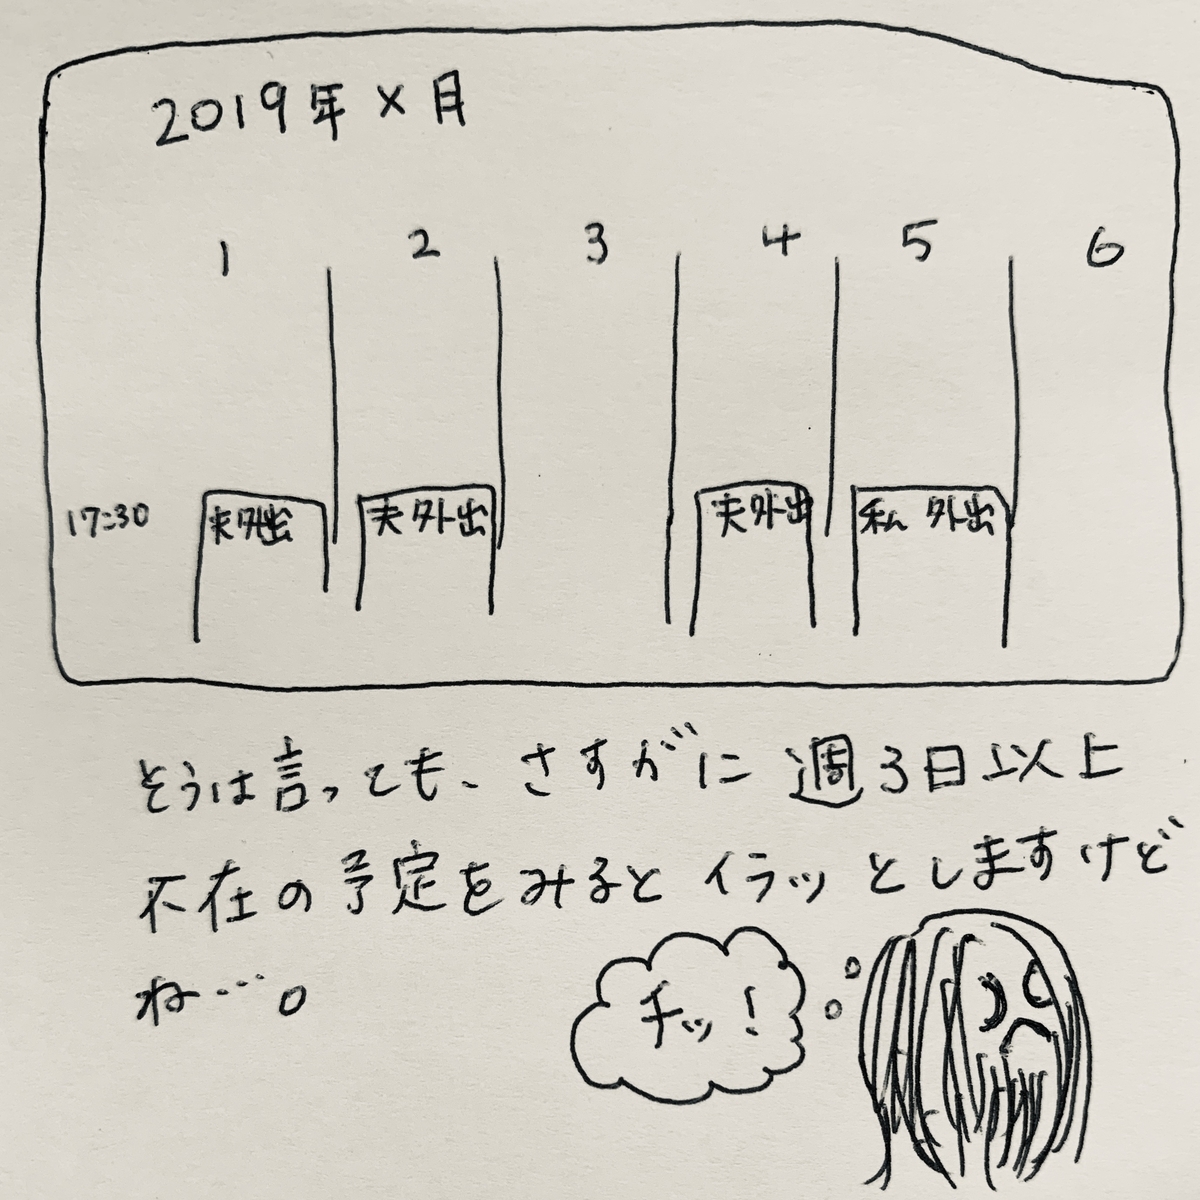 2019年×月
1 2 3 4 5 6
17:30 夫外出 夫外出 夫外出 私 外出
そうは言っても、さすがに週3日以上
不在の予定をみるとイラッとしますけど
ね…。
チッ!